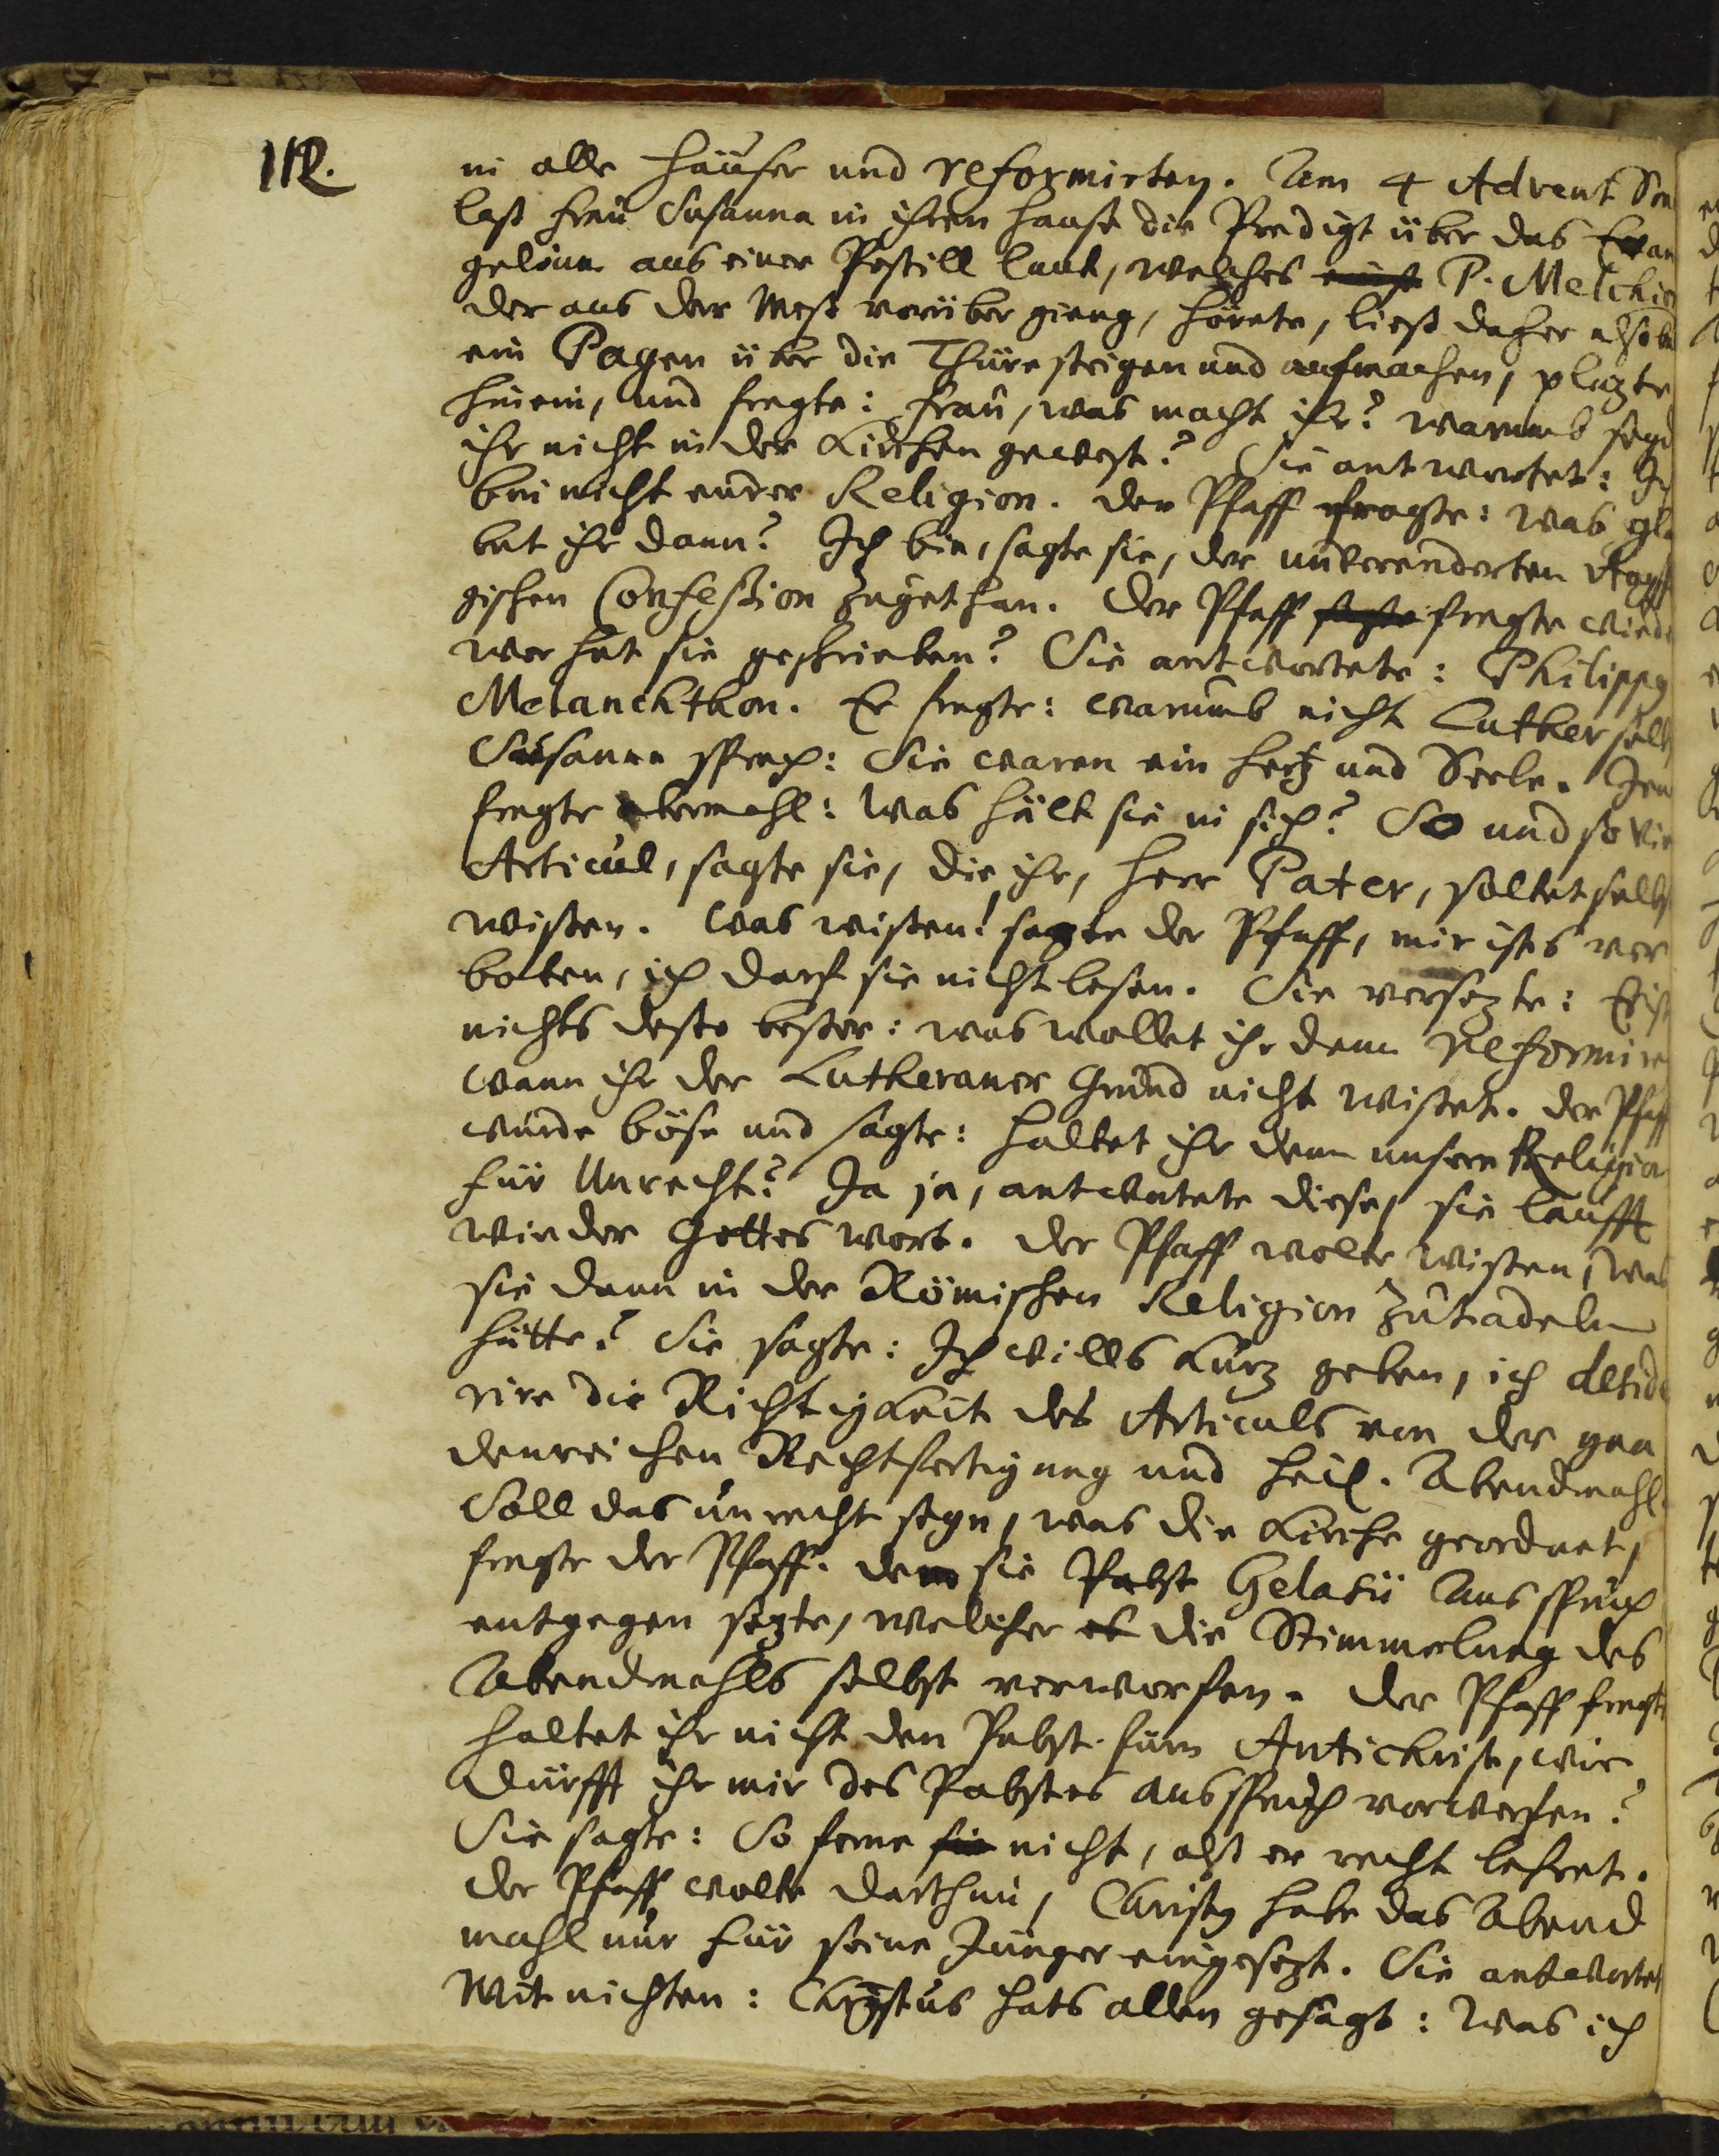 112.
in alle Häuser und reformirten. Am 4 Advent Son
laß Frau Susanna in ihrem Hause die Predigt über das Evan
gelium aus einer Postill laut, welches P. Melchio
der aus der Meß vorüber gieng, hörete, ließ daher alsobal
ein Pagen über die Thüre steigen und aufmachen, plazte
hinein, und fragte: Frau, was macht ihr? warumb seyd
ihr nicht in der Kirchen gewest? Sie antwortet: Ich
bin nicht eurer Religion. Der Pfaff fragte: was gla
bet ihr dann? Ich bin, sagte sie, der unverenderten Augsp
gischen Confession zugethan. Der Pfaff sagte fragte wiede
wer hat sie geschrieben? Sie antwortete: Philippg
Melanchthon. Er fragte: warumb nicht Luther selb
Susanna sprach: Sie waren ein Hertz und Seele. Jen
fragte abermahl: Was hält sie in sich? So und so vie
Articul, sagte sie, die ihr, Herr Pater, soltet selbs
wißen. Was wißen! sagte der Pfaff, mir ists ver
boten, ich darf sie nicht lesen. Sie versezte: Ey ist
nichts desto beßer: was wollet ihr denn reformire
wann ihr der Lutheraner Grund nicht wißet. Der Pfaff
wurde böse und sagte: haltet ihr denn unsere Religion
für Unrecht? Ja ja, antwortete diese, sie laufft
wieder Gottes Wort. Der Pfaff wolte wißen, was
sie dann in der Römischen Religion zu tadeln
hätte? Sie sagte: Ich wills kurz geben, ich deside
rire die Richtigkeit des Articuls von der gna
denreichen Rechtfertigung und Heil. Abendmahl.
Soll das unrecht seyn, was die Kirche geordnet,
fragte der Pfaff. dem sie Pabst Gelasii Ausspruch
entgegen sezte, welcher es die Stimmelung des
Abendmahls selbst verworfen. Der Pfaff fragte
haltet ihr nicht den Pabst fürn Antichrist, wie
dürfft ihr mir des Pabstes Ausspruch vorwerfen?
Sie sagte: So ferne sie nicht, alß er recht lehret.
Der Pfaff wolte darthun, Christg habe das Abend
mahl nur für seine Jünger eingesezt. Sie antwortet
Mit nichten: Christus hats allen gesagt: Was ich